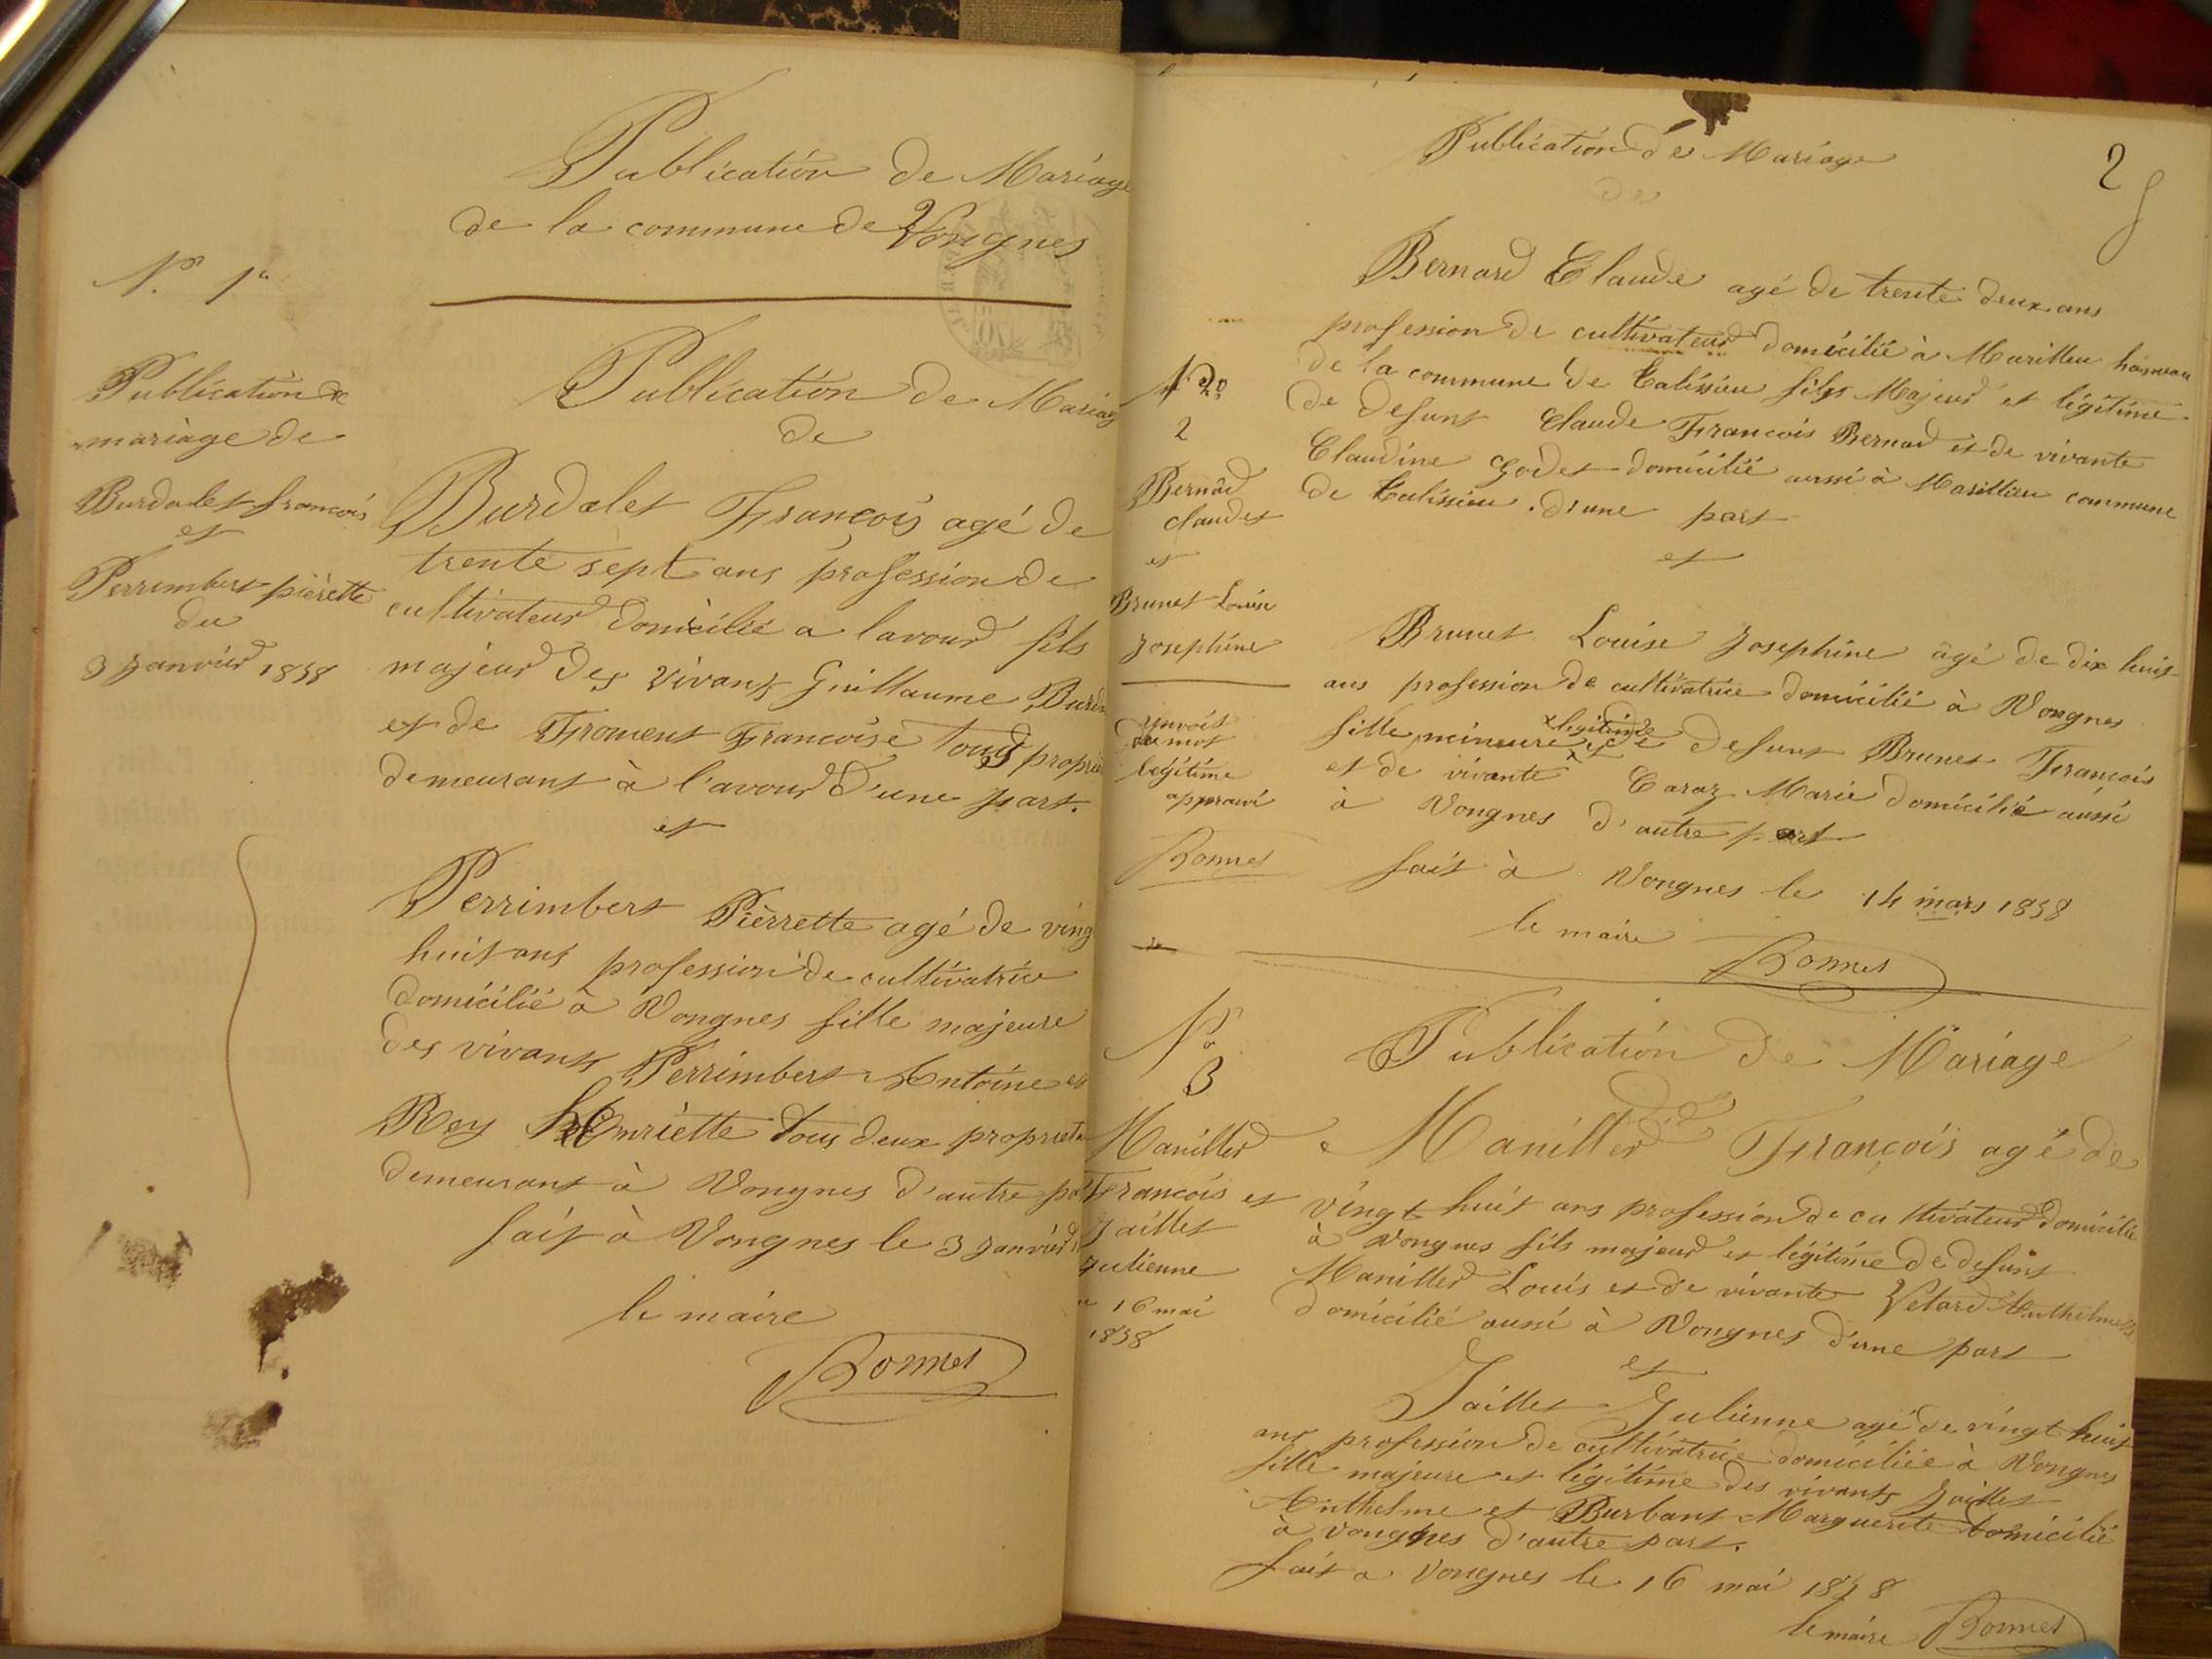 Publication de Mariage
de la commune de Vongnes
N° 1er
Publication de
mariage de
Burdalet francois
et
Perrimbert pièrette
du
3 Janvier 1858
Publication de Mariag
de
Burdalet François agé de
trente sept ans profession de
cultivateur domicilié a lavour fils
majeur des vivants Guillaume Burda
et de Froment Francoise tous proprié
demeurant à l'avour d'une part.
et
Perrimbert Pièrrette agé de ving
huit ans profession de cultivatrice
domicilié à Vongnes fille majeure
des vivants Perrimbert Antoine et
Rey Henriette tous deux propriet
demeurant à Vongnes d'autre pa
fait à Vongnes le 3 Janvier
le maire
Bonnet
Publication de Mariage
2
de
N° 2
2
Bernard
claudet
et
Brunet Louise
Josephine
renvois
du mot
légitime
approuvé
Bonnet
Bernard Claude agé de trente deux ans
profession de cultivateur domicilié à Marillieu hameau
de la commune de Talissieu fils Majeur et légitime
de defunt Claude François Bernard et de vivante
Claudine Godet domicilié aussi à Masillieu commune
de Talissieu d'une part
et
Brunet Louise Josephine âgé de dix huit
ans profession de cultivatrice domicilié à Vongnes
fille mineure x légitime de defunt Brunet François
et de vivante Caraz Marie domicilié aussi
à Vongnes d'autre part
fait à Vongnes le 14 mars 1858
le maire Bonnet
N°
3
Maniller
François et
Jaillet
Julienne
16 mai
1858
Publication de Mariage
de
Maniller François agé de
vingt huit ans profession de cultivateur domicilié
à Vongnes fils majeur et légitime de defunt
Maniller Louis et de vivante Vetard Anthelmette
domicilié aussi à Vongnes d'une part
et
Jaillet Julienne agé de vingt huit
ans profession de cultivatrice domiciliée à Vongnes
fille majeure et légitime des vivants Jaillet
Anthelme et Burbant Marguerite domicilié
à vongnes d'autre part.
fait a Vongnes le 16 mai 1858
le maire Bonnet